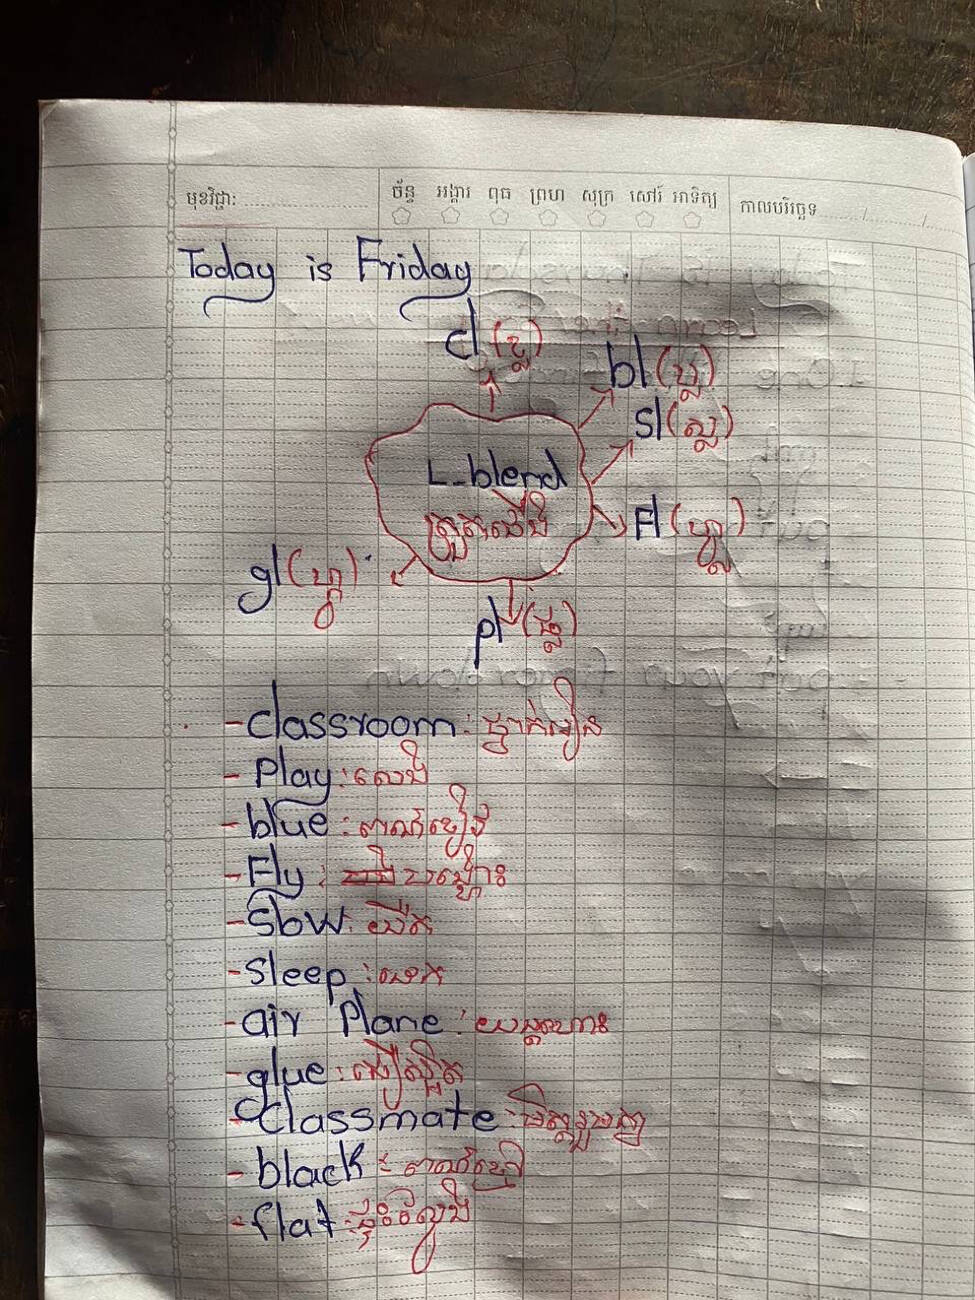 មុខវិជ្ជា: ច័ន្ទ អង្គារ ពុធ ព្រហ សុក្រ សៅរ៍ អាទិត្យ កាលបរិច្ឆេទ
Today is Friday
cl (ខ្ល)
bl (ប្ល)
sl (ស្ល)
L-blend
Fl (ហ្វ្ល)
gl (ហ្គ្ល)
pl (ផ្ល)
- classroom: ថ្នាក់រៀន
- Play: លេង
- blue: ពណ៌ខៀវ
- Fly: បង្ហោះ
- Slow: យឺត
- Sleep: គេង
- air Plane: យន្តហោះ
- glue:
- Classmate: មិត្តរួមថ្នាក់
- black: ពណ៌ខ្មៅ
- flat: